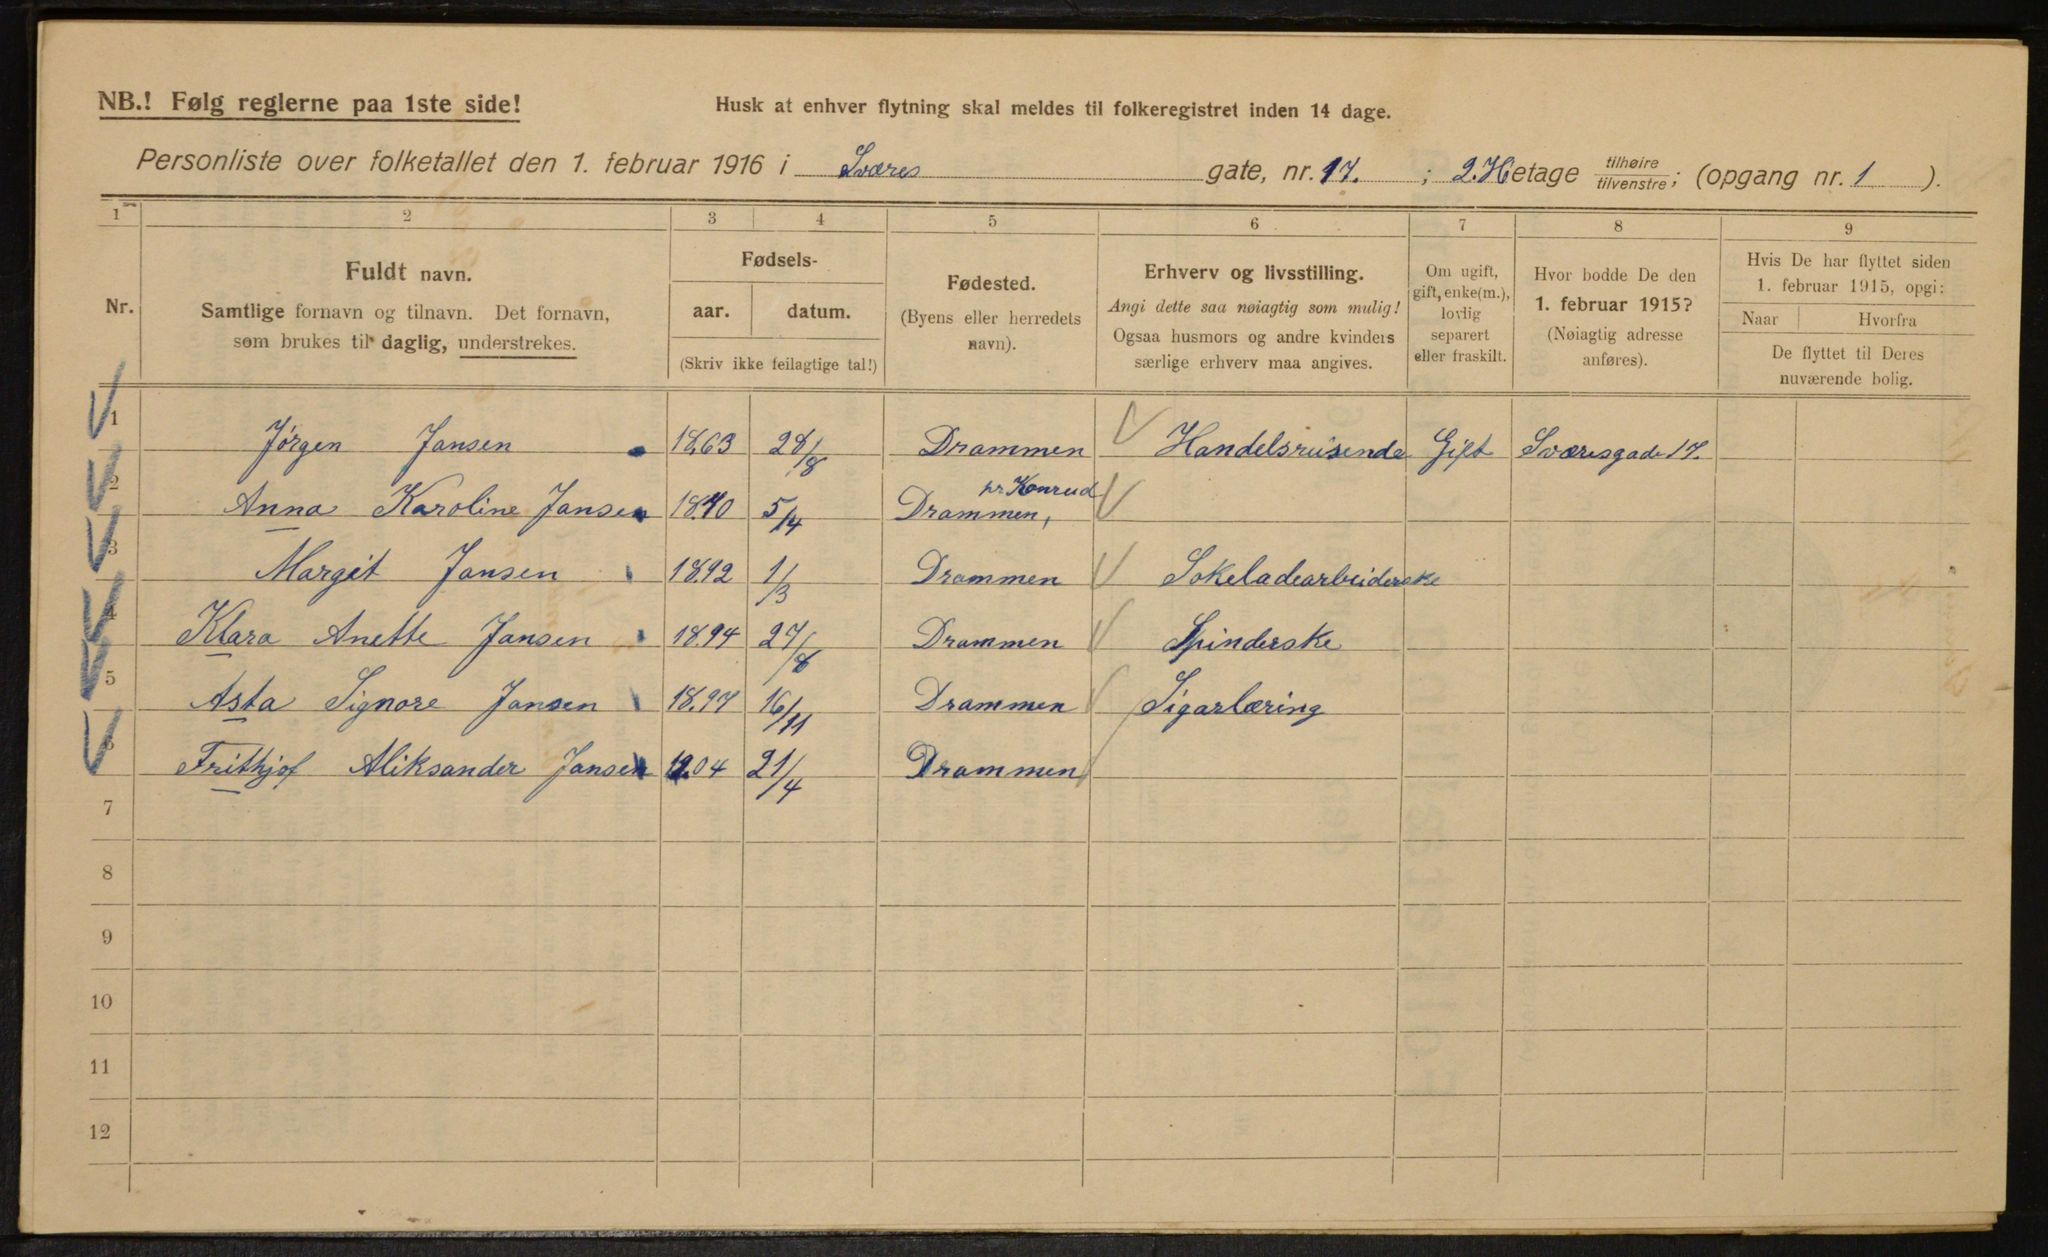 NB.! Følg reglerne paa 1ste side!
Husk at enhver flytning skal meldes til folkeregistret inden 14 dage.
Personliste over folketallet den 1. februar 1916 i Sværes gate, nr. 17. ; 2. etage tilhøire tilvenstre; (opgang nr. 1 ).
1 2 3 4 5 6 7 8 9
Nr.
Fuldt navn.
Samtlige fornavn og tilnavn. Det fornavn,
som brukes til daglig, understrekes.
Fødsels-
aar. datum.
(Skriv ikke feilagtige tal!)
Fødested.
(Byens eller herredets
navn).
Erhverv og livsstilling.
Angi dette saa nøiagtig som mulig!
Ogsaa husmors og andre kvinders
særlige erhverv maa angives.
Om ugift,
gift, enke(m.),
lovlig
separert
eller fraskilt.
Hvor bodde De den
1. februar 1915?
(Nøiagtig adresse
anføres).
Hvis De har flyttet siden
1. februar 1915, opgi:
Naar Hvorfra
De flyttet til Deres
nuværende bolig.
1 Jørgen Jansen 1863 28/8 Drammen Handelsreisende Gift Sværesgade 17.
2 Anna Karoline Jansen 18 5/4 Drammen,
3 Margit Jansen 1892 1/3 Drammen Sokeladearbeiderske
4 Klara Anette Jansen 18.94 27/8 Drammen Spinderske
5 Asta Signore Jansen 18.97 16/11 Drammen Sigarlæring
6 Frithjof Aliksander Jansen 19.04 21/4 Drammen
7
8
9
10
11
12